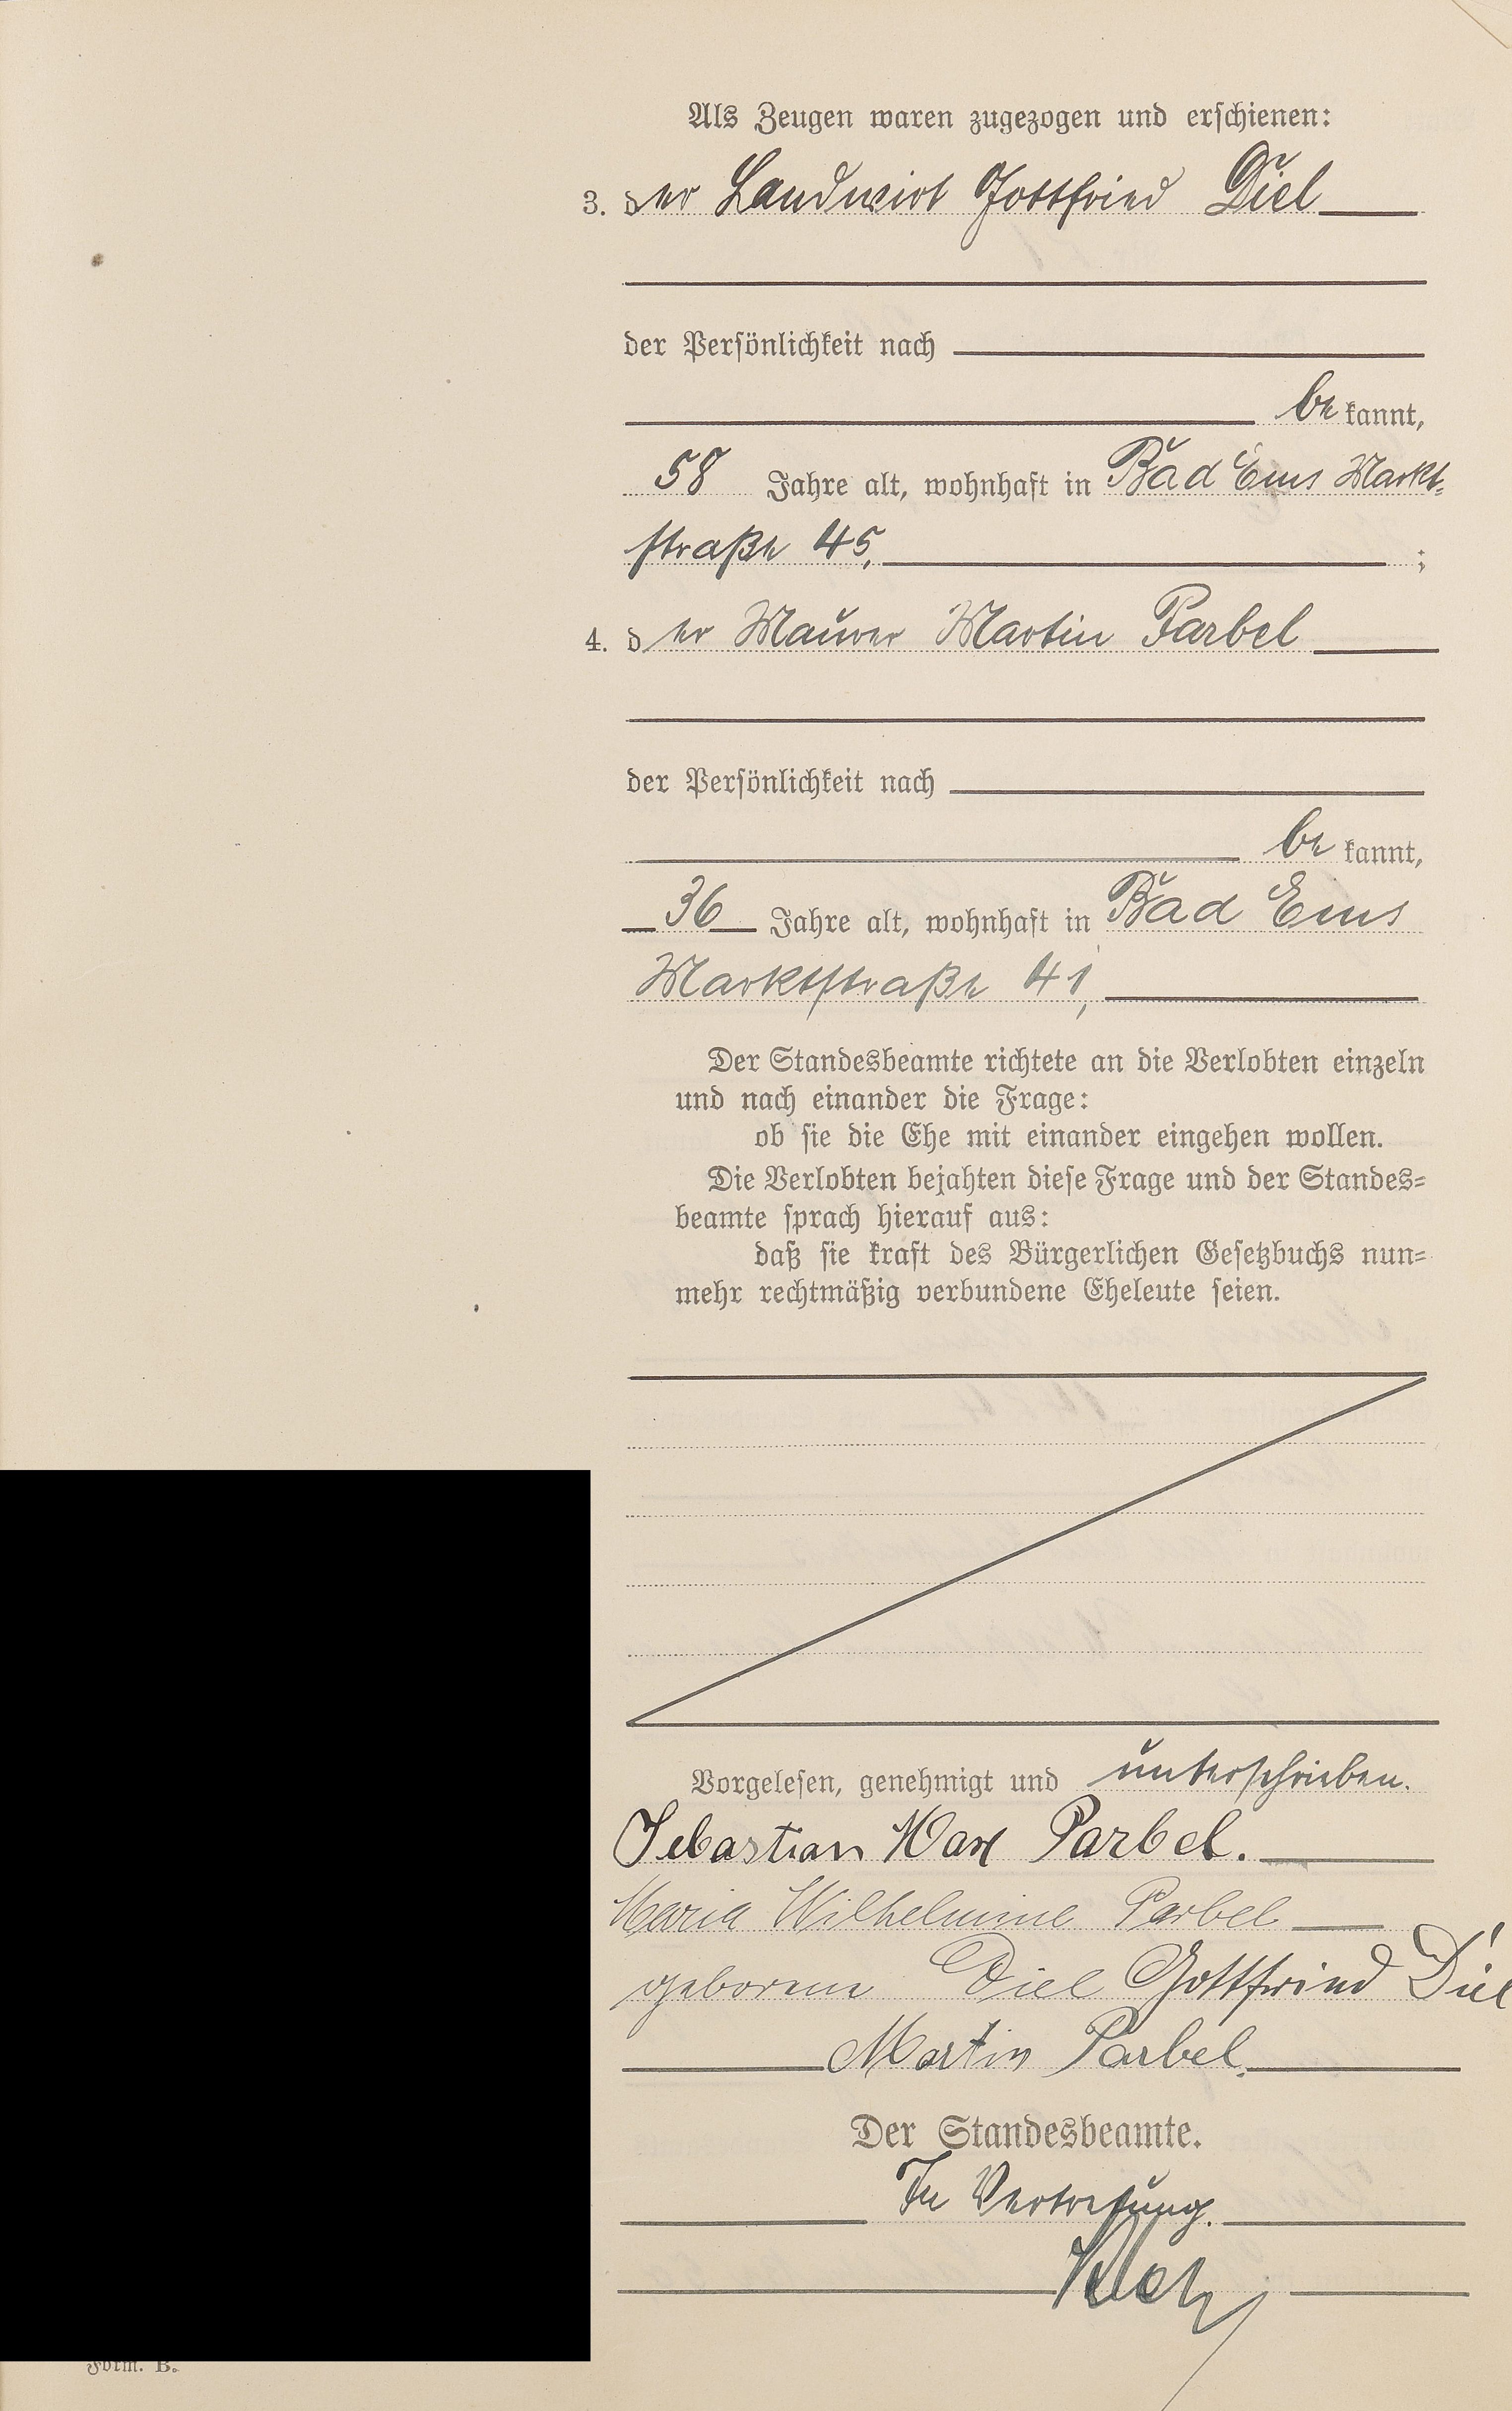 Als Zeugen waren zugezogen und erschienen:
3. der Landwirt Gottfried Diel
der Persönlichkeit nach
bekannt,
58 Jahre alt, wohnhaft in Bad Ems Markt-
straße 45, ;
4. der Maurer Martin Parbel
der Persönlichkeit nach
bekannt,
36 Jahre alt, wohnhaft in Bad Ems
Marktstraße 41,
Der Standesbeamte richtete an die Verlobten einzeln
und nach einander die Frage:
ob sie die Ehe mit einander eingehen wollen.
Die Verlobten bejahten diese Frage und der Standes-
beamte sprach hierauf aus:
daß sie kraft des Bürgerlichen Gesetzbuchs nun-
mehr rechtmäßig verbundene Eheleute seien.
Vorgelesen, genehmigt und unterschrieben.
Sebastian Max Parbel.
Maria Wilhelmine Parbel
geborene Diel Gottfried Diel
Martin Parbel.
Der Standesbeamte.
In Vertretung.
Form. B.